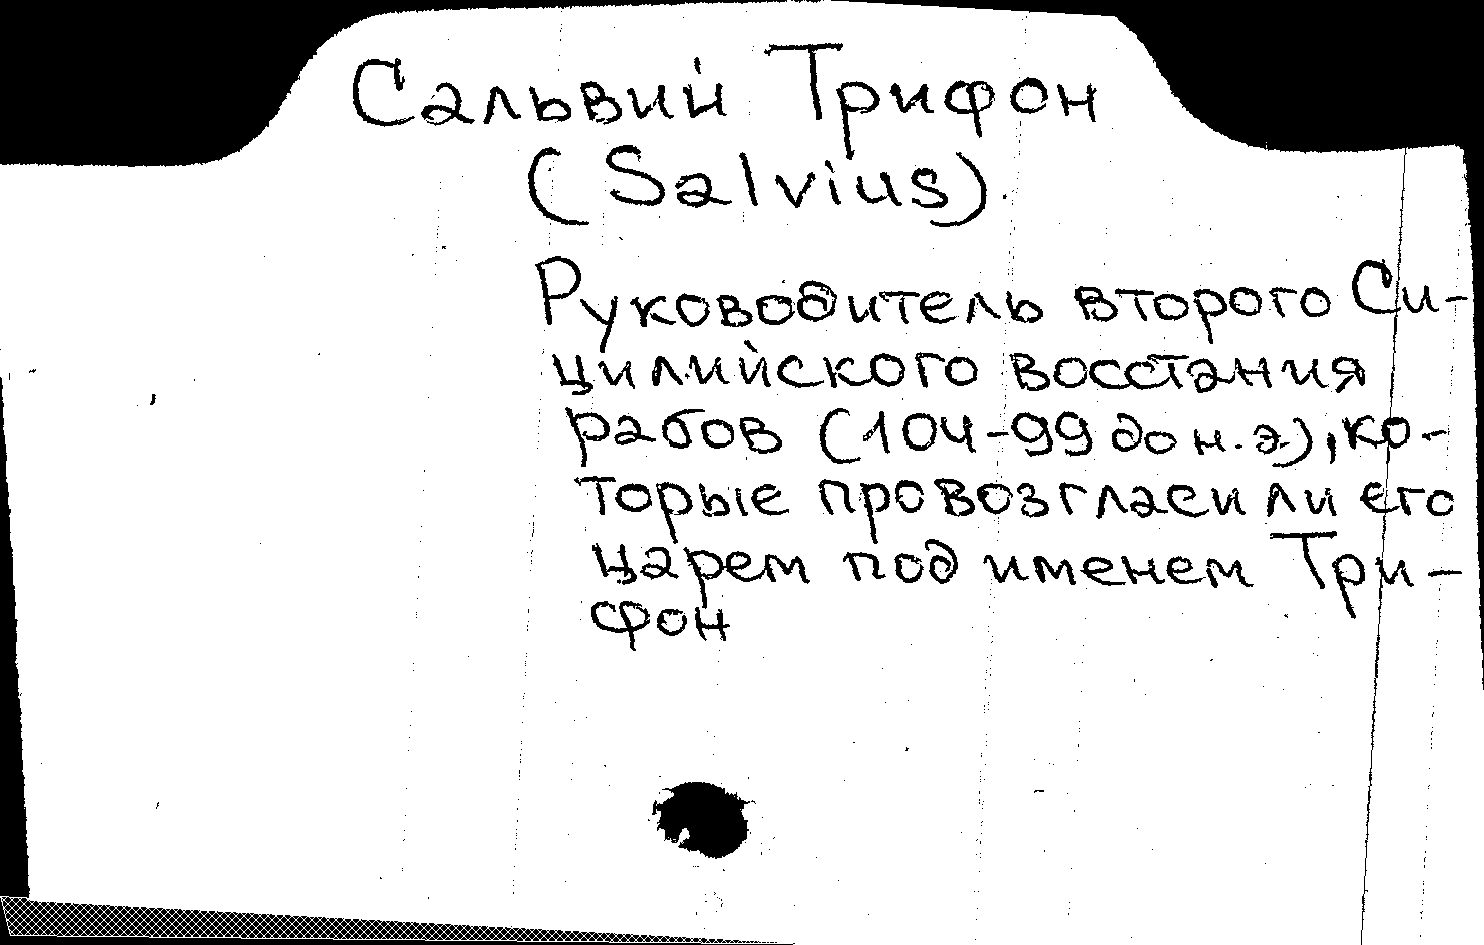 Сальвий Трифон
(Salvius).
Руководитель второго Си-
цилийского восстания
рабов (104-99 до н.э.), ко-
торые провозгласили его
царем под именем Три-
фон